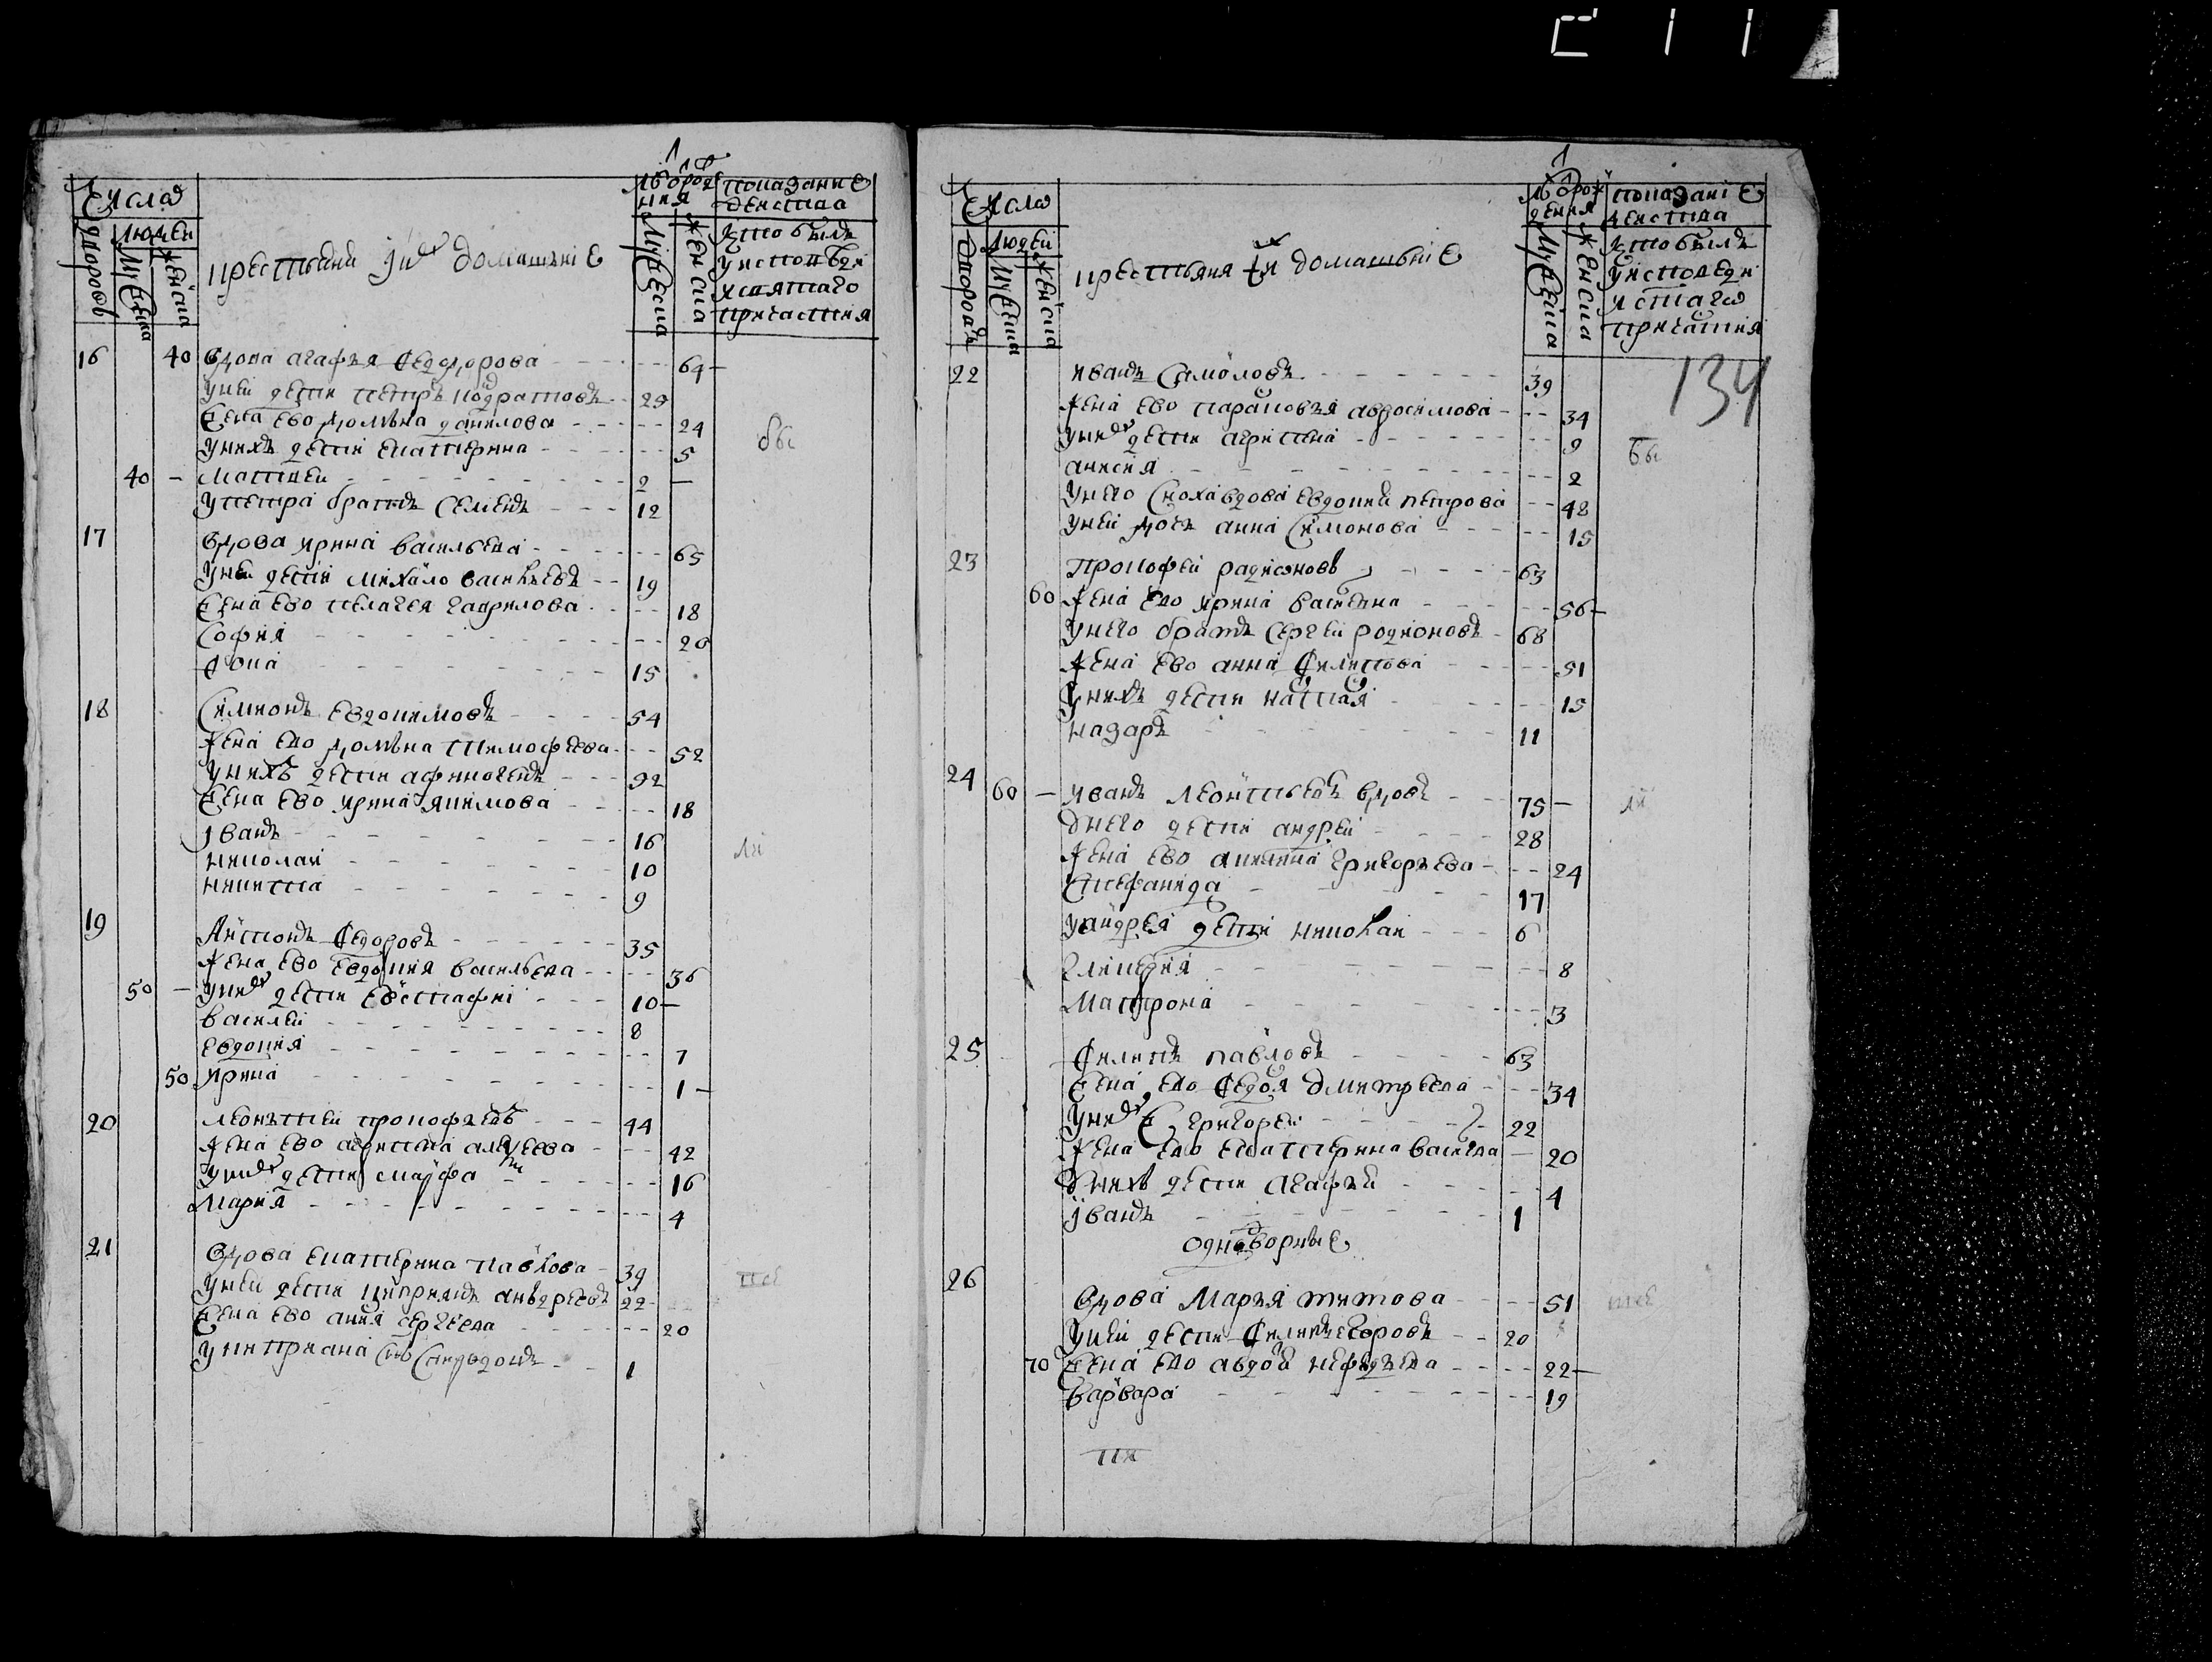 211
Число
дворовъ
людей
мужеска
женска
крестьяня и ихъ домашние
лѣ от рожде
ния
мужеска
женска
показание
действа
кто былъ
у исповеди
и святаго
причастия
16 40 вдова агафья Федорова 64
у неи дети петръ кодратовъ 25
жена ево домна данилова 24
у нихъ дети екатерина 5
бы
40 матвеи 2
у петра братъ Семенъ 12
17 вдова ирина васильева 65
у неи дети михаило васильевъ 19
жена ево пелагея гаврилова 18
София 20
фока 15
18 Симионъ евдокимовъ 54
жена ево домна тимофеева 52
у нихъ дети афиногенъ 92
жена ево ирина якимова 18
иванъ 16
николаи 10
ли
никита 9
19 Антонъ Федоровъ 35
жена ево евдокия васильева 36
50 у нихъ дети евстафии 10
василеи 8
евдокия 7
50 ирина 1
20 леонътеи прокофьевъ 44
жена ево агрипена алексеева 42
у нихъ дети марфа 16
мария 4
21 вдова екатерина павлова 39
у неи дети киприянъ анъдреевъ 22
псе
жена ево анна сергеева 20
у киприана снъ Спиридонъ 1
Число
дворовъ
людеи
мужеска
женска
крестьяня и их домашние
лѣ от рож
дения
мужеска
женска
показание
действа
кто былъ
у исповеди
и стаго
причатия
134
22 иванъ Самоловъ 39
жена ево парасковья авросимова 34
у нихъ дети агрипена 9
бы
анисия 2
у него сноха вдова евдокия петрова 48
у неи дочь анна Симонова 15
23 Прокофеи радионовъ 63
60 жена ево ирина васильева 56
у него братъ сергеи родионовъ 68
жена ево анна Филипова 51
у нихъ дети настася 15
назаръ 11
24 60 иванъ леонтьевъ вдовъ 75
ли
у него дети андреи 28
жена ево акилина григорьева 24
Епифанида 17
у андрея дети николаи 6
гликерия 8
матрона 3
25 Филипъ павловъ 63
жена ево Федося дмитрева 34
у нихъ григореи 22
жена ево екатерина васильева 20
у нихъ дети агафья 4
иванъ 1
однодворные
26 вдова Марья титова 51
псе
у неи дети Филипъ егоровъ 20
70 жена ево авдотя нефедьева 22
варвара 19
пя